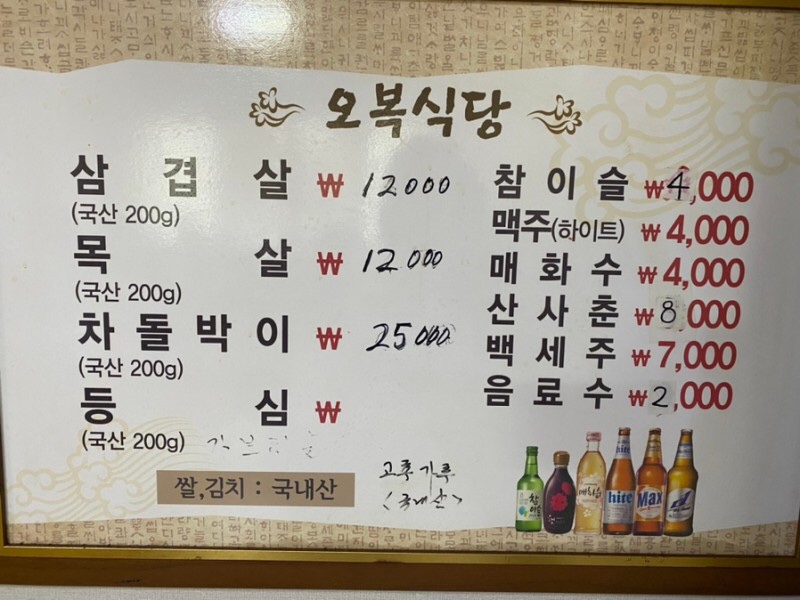 오복식당
삼겹살 ₩ 12000
(국산 200g)
목살 ₩ 12.000
(국산 200g)
차돌박이 ₩ 25000
(국산 200g)
등심 ₩
(국산 200g)
쌀,김치 : 국내산
고추가루
<국내산>
참이슬 ₩4,000
맥주(하이트) ₩4,000
매화수 ₩4,000
산사춘 ₩8000
백세주 ₩7,000
음료수 ₩2,000
hite
Max